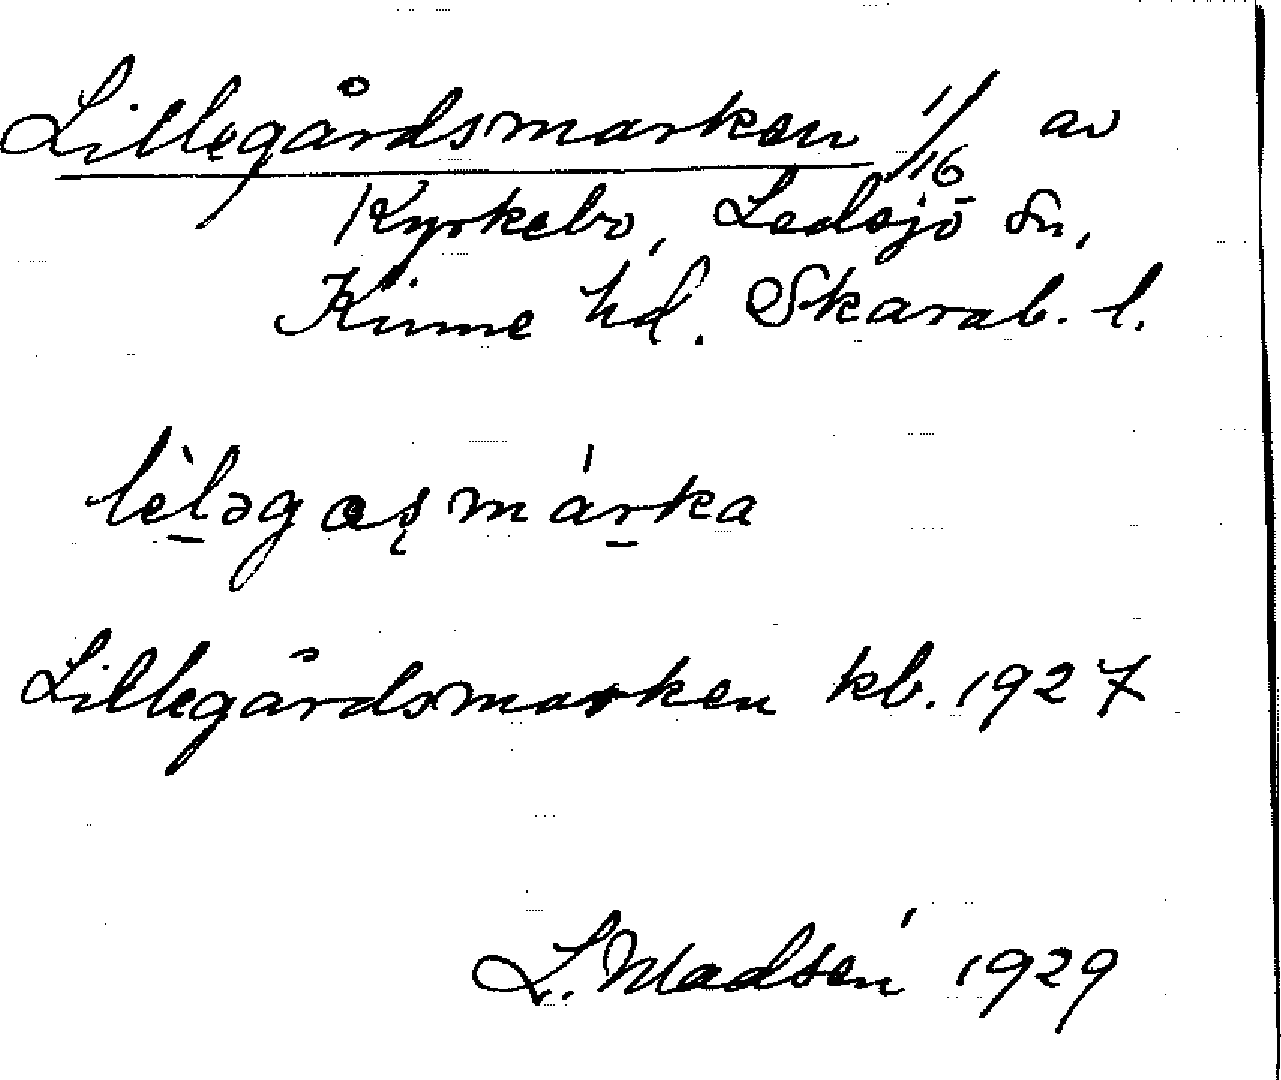 Lillegårdsmarken 1/16 av
Kyrkebo, Ledsjö sn,
Kinne hd. Skarab. l.
lèl̠əgɑʂmár̠ka
Lillegårdsmarken kb. 1927
L. Madsén 1929